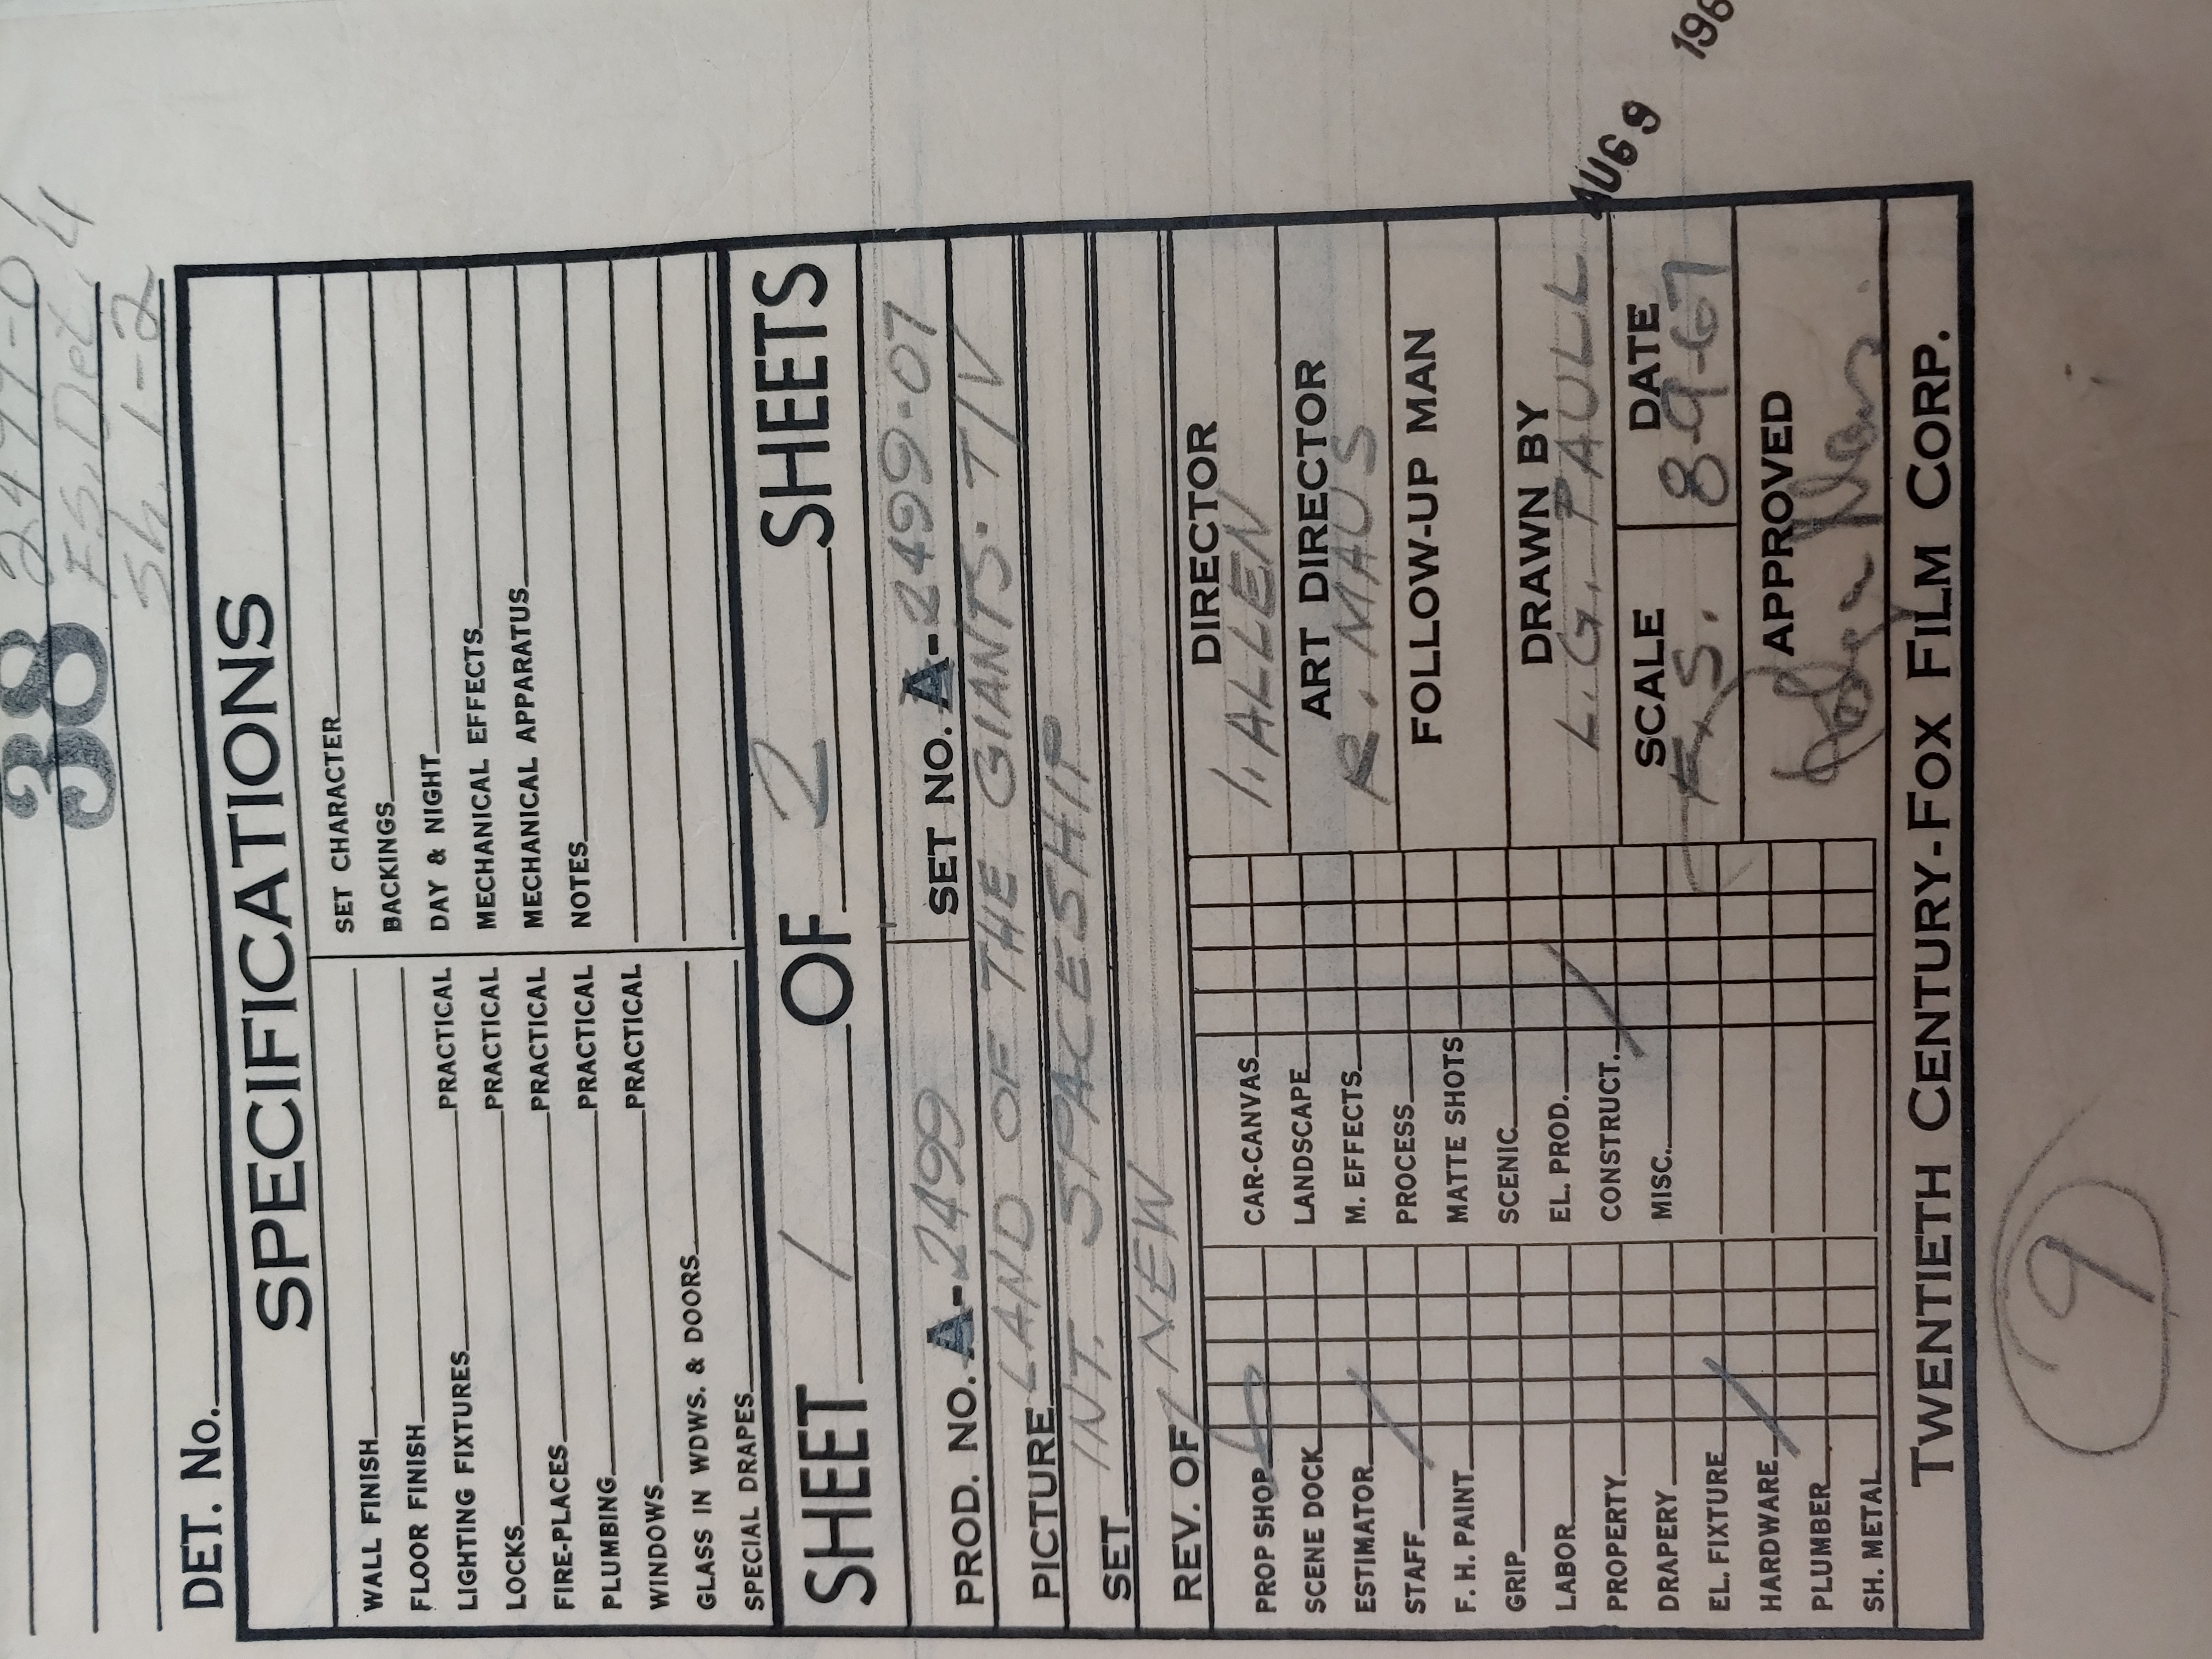 38
F.S. Det. 4
Sh. 1-2
DET. NO.
SPECIFICATIONS
WALL FINISH
FLOOR FINISH
LIGHTING FIXTURES PRACTICAL
LOCKS PRACTICAL
FIRE-PLACES PRACTICAL
PLUMBING PRACTICAL
WINDOWS PRACTICAL
GLASS IN WDWS. & DOORS
SPECIAL DRAPES
SET CHARACTER
BACKINGS
DAY & NIGHT
MECHANICAL EFFECTS
MECHANICAL APPARATUS
NOTES
SHEET 1 OF 2 SHEETS
PROD. NO. A-2499 SET NO. A-2499-07
PICTURE LAND OF THE GIANTS - T/V
SET INT. SPACESHIP
REV. OF NEW
PROP SHOP
SCENE DOCK
ESTIMATOR
STAFF
F. H. PAINT
GRIP
LABOR
PROPERTY
DRAPERY
EL. FIXTURE
HARDWARE
PLUMBER
SH. METAL
CAR-CANVAS
LANDSCAPE
M. EFFECTS
PROCESS
MATTE SHOTS
SCENIC
EL. PROD.
CONSTRUCT.
MISC.
DIRECTOR
I. ALLEN
ART DIRECTOR
R. MAUS
FOLLOW-UP MAN
DRAWN BY
L. G. PAULL
SCALE DATE
F.S. 8-9-67
APPROVED
TWENTIETH CENTURY-FOX FILM CORP.
AUG 9 196
9